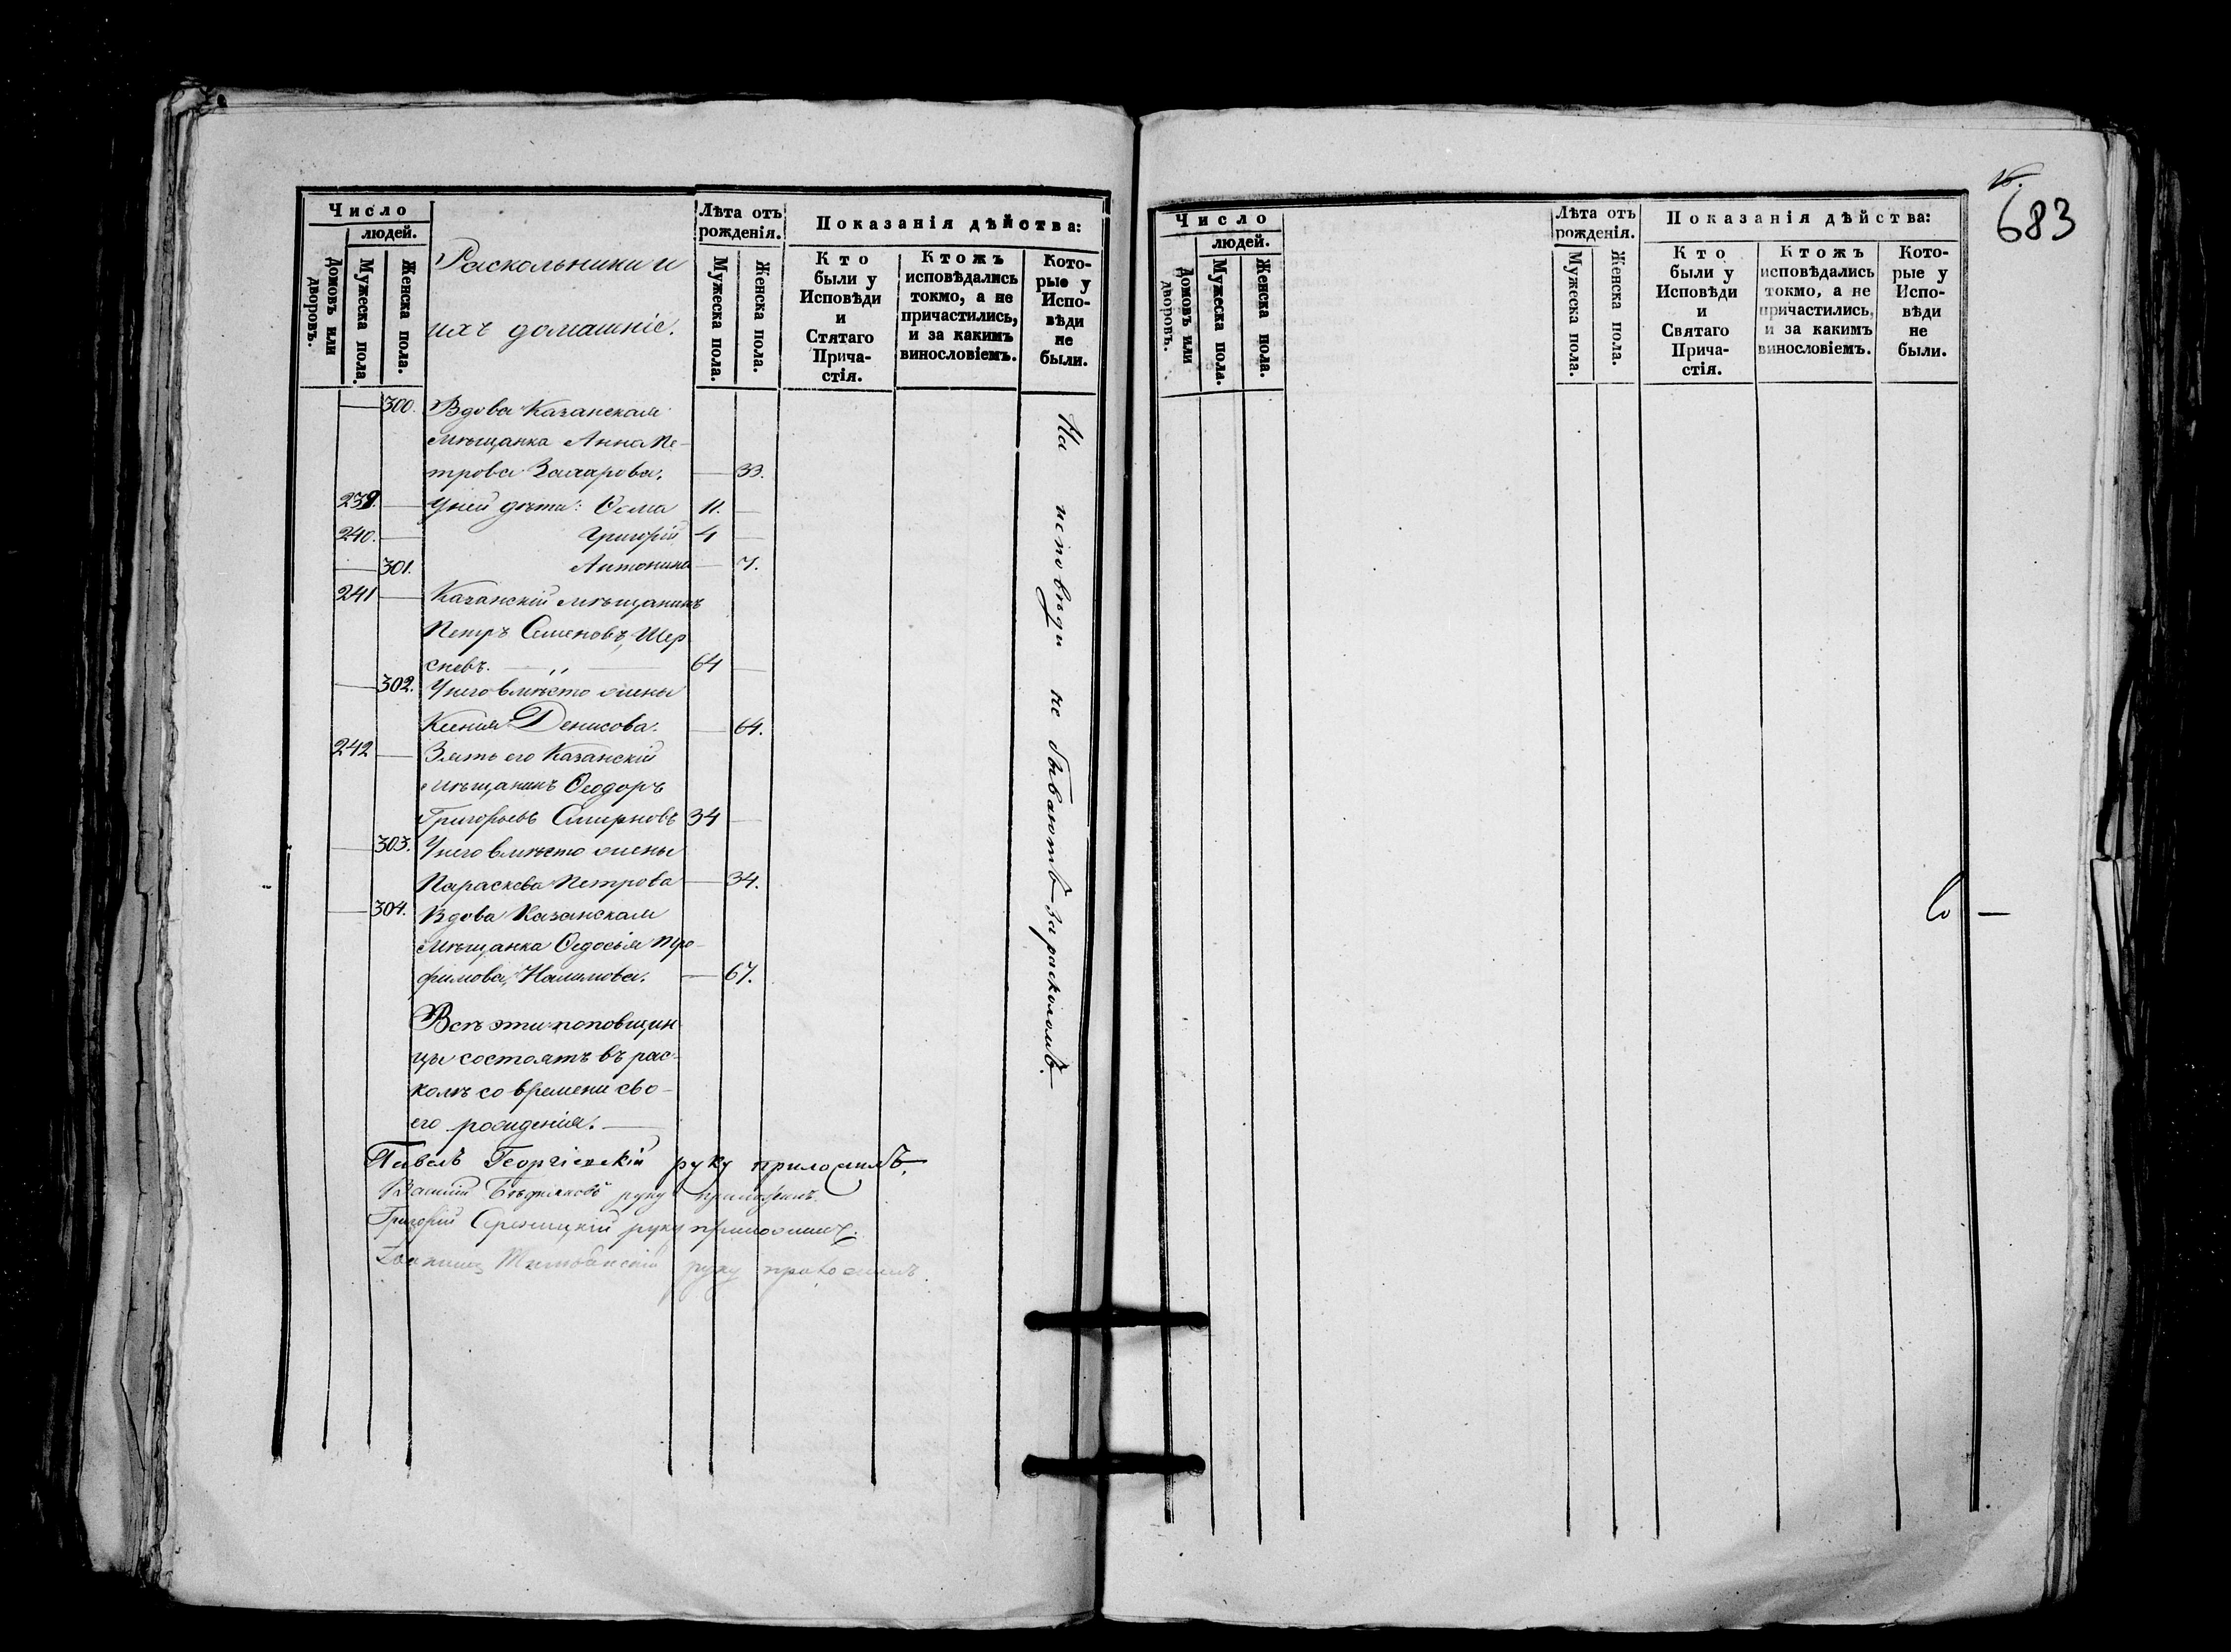 Число
людей.
Домовъ или дворовъ.
Мужеска пола.
Женска пола.
Раскольники и
ихъ домашніе.
Лѣта отъ рожденія.
Мужеска пола.
Женска пола.
Показанія дѣйства:
Кто были у Исповѣди и Святаго Прича-стія.
Ктожъ исповѣдались токмо, а не причастились, и за какимъ винословіемъ.
Кото-рые у Испо-вѣди не были.
300. Вдова Казанская
мѣщанка Анна Пе-
трова Захарова. — 33.
239. — У ней дѣти: Ѳома 11. —
240. — Григорій 4 —
— 301. Антонина — 7.
241 — Казанскій мѣщанинъ
Петръ Семеновъ, Шер
сневъ. — „ — 64 —
— 302. У него вмѣсто жены
Ксенія Денисова. — 64.
242 — Зять его Казанскій
мѣщанинъ Ѳеодоръ
Григорьевъ Смирновъ 34 —
— 303. У него вмѣсто жены
Параскева Петрова — 34.
— 304. Вдова Казанская
мѣщанка Ѳедосья Тро-
фимова, — 67.
Всѣ эти поповщин
цы состоятъ въ рас-
колѣ со времени сво-
его рожденія. —
На исповѣди не бываютъ за расколомъ.
Павелъ Георгіевскій руку приложилъ.
Василій руку приложилъ.
Григорій руку приложилъ.
руку приложилъ.
683
Число
людей.
Домовъ или дворовъ.
Мужеска пола.
Женска пола.
Лѣта отъ рожденія.
Мужеска пола.
Женска пола.
Показанія дѣйства:
Кто были у Исповѣди и Святаго Прича-стія.
Ктожъ исповѣдались токмо, а не причастились, и за какимъ винословіемъ.
Кото-рые у Испо-вѣди не были.